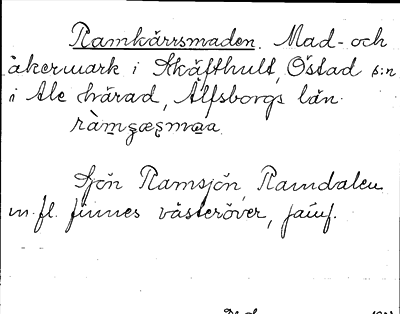 Ramkärrsmaden. Mad- och
åkermark i Skäfthult, Östad s:n
i Ale härad, Älfsborgs län.
Sjön Ramsjön, Ramdalen
m. fl. finnes västeröver, jämf.